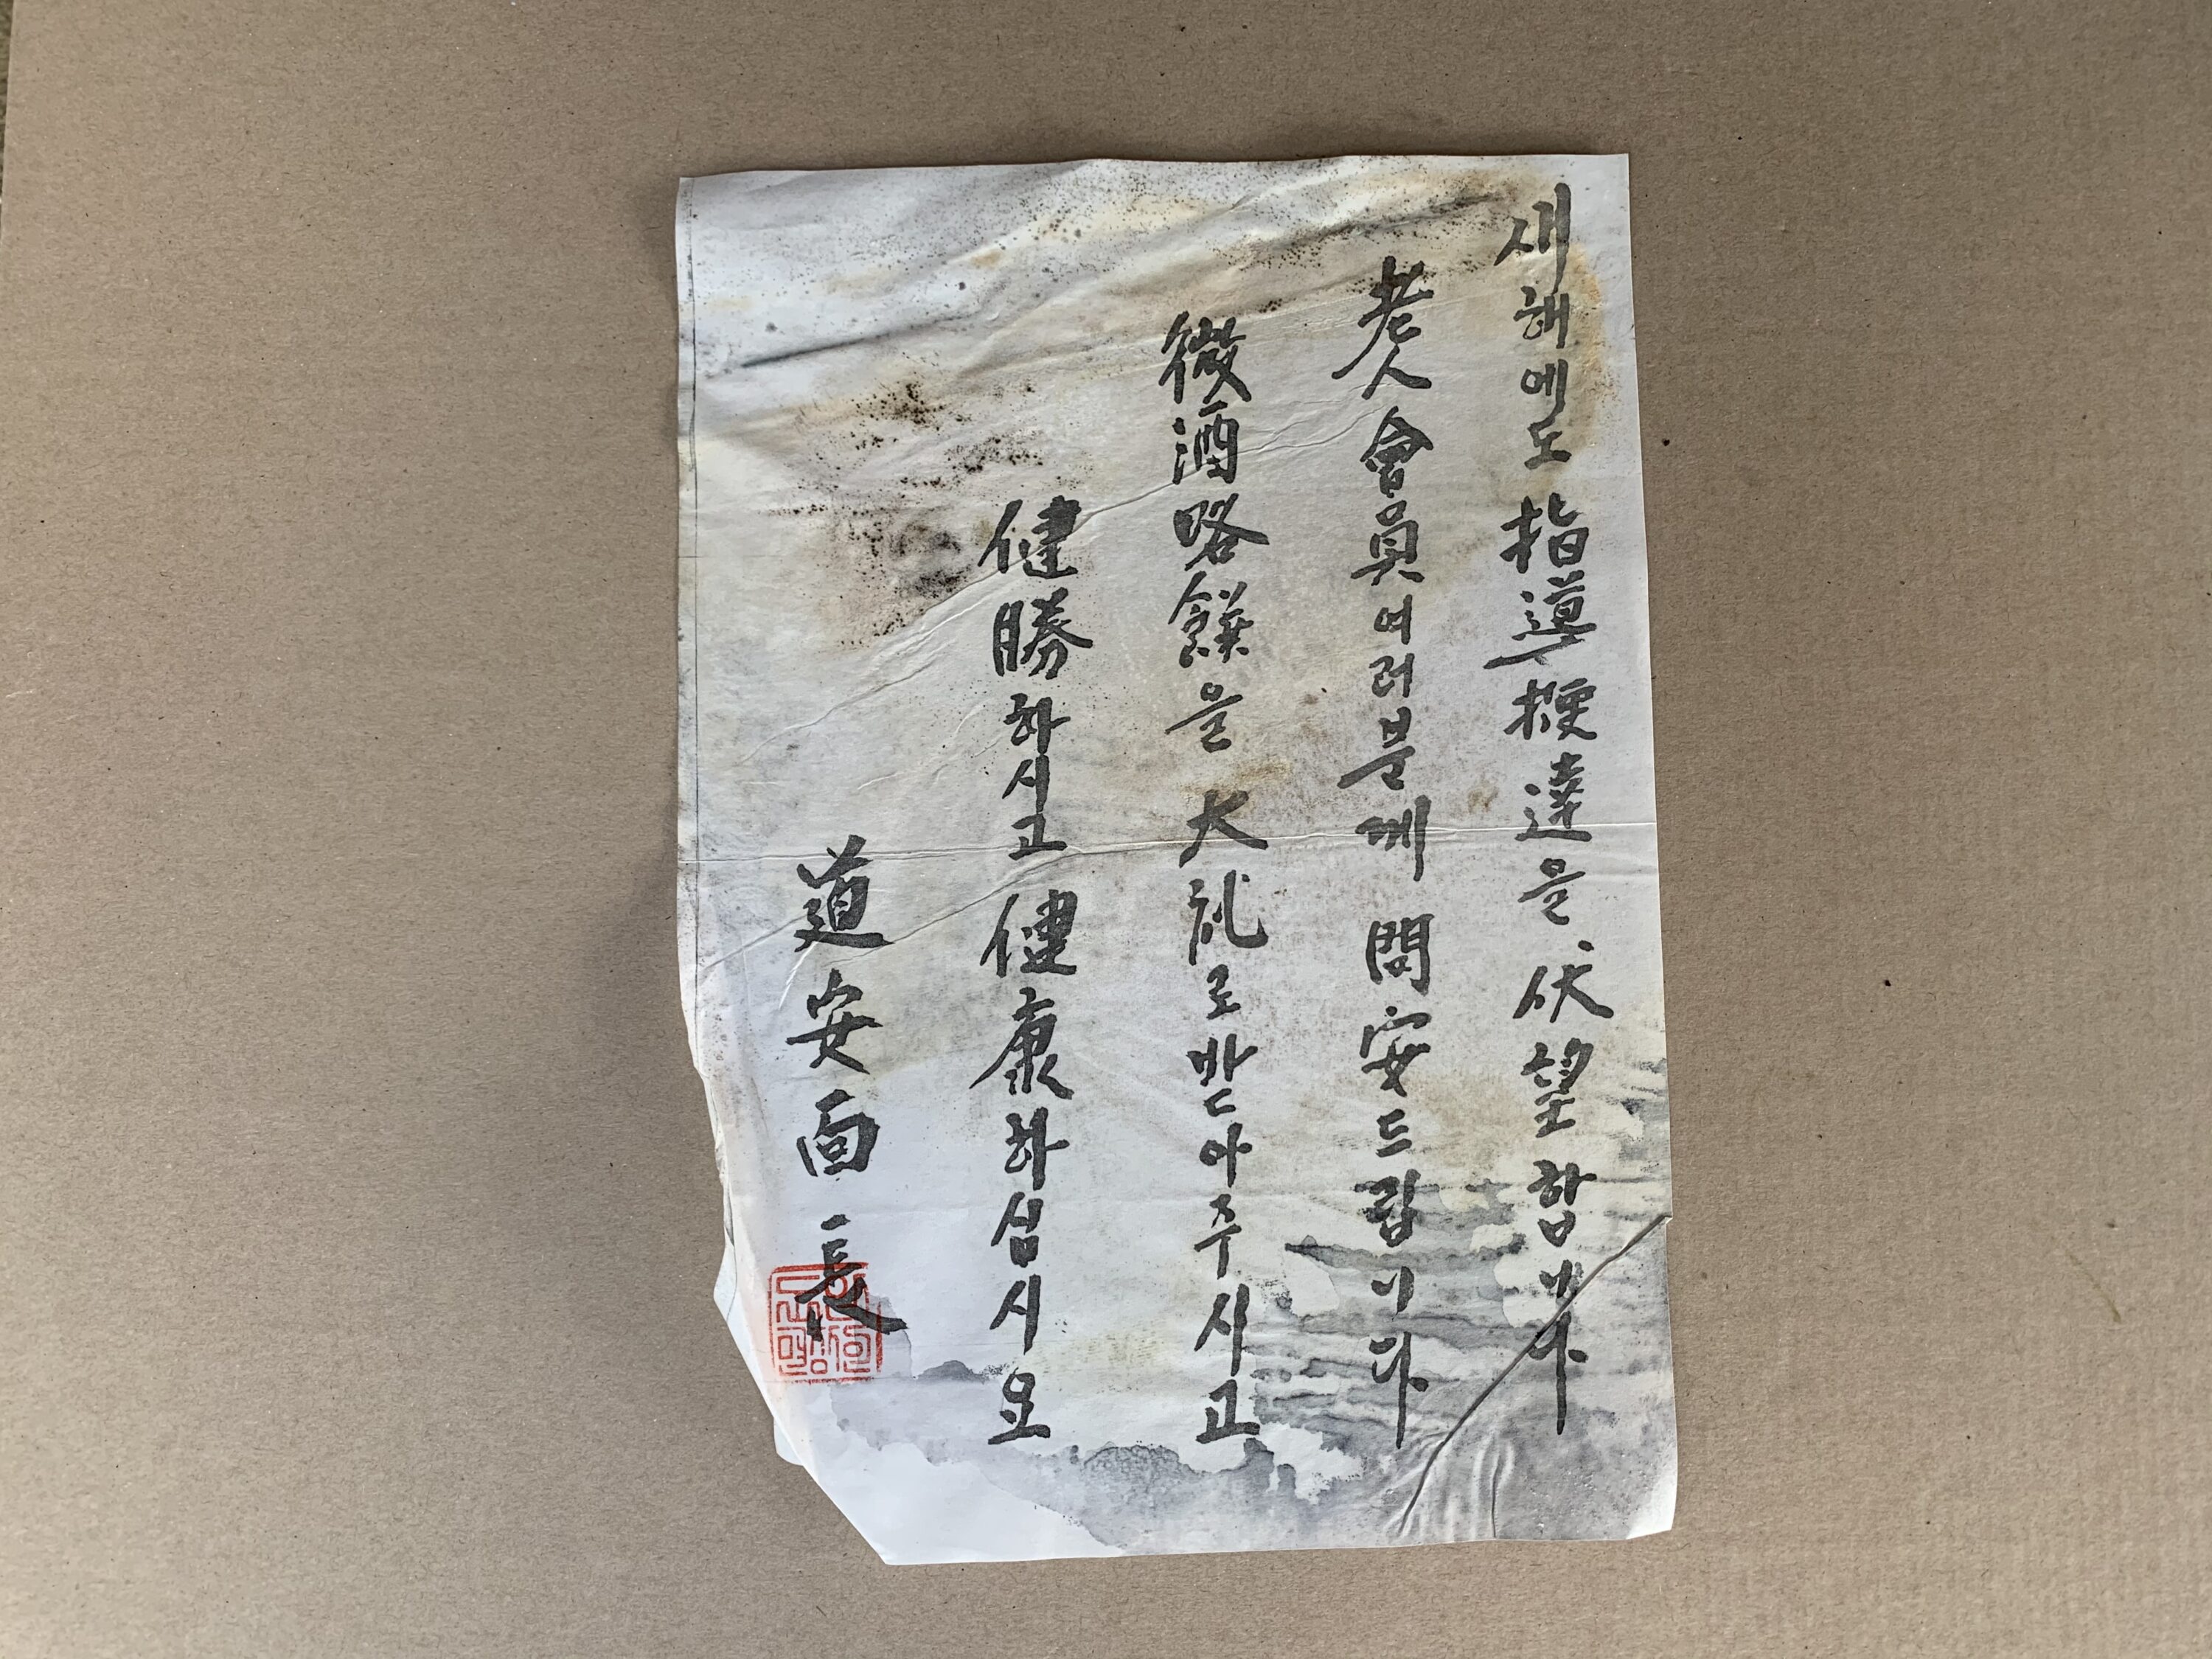 새해에도 指導挭達을 伏望합니다
老人會員여러분께 問安드립니다
微酒略饌을 大礼로받아주시고
健勝하시고 健康하십시오
道安面長